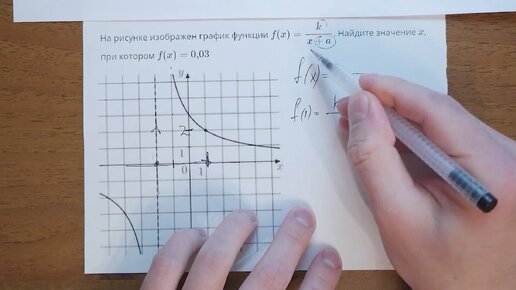 На рисунке изображен график функции f(x) = k/(x + a). Найдите значение x,
при котором f(x) = 0,03
f(x) =
f(1) = k
y
2
1
0 1
x